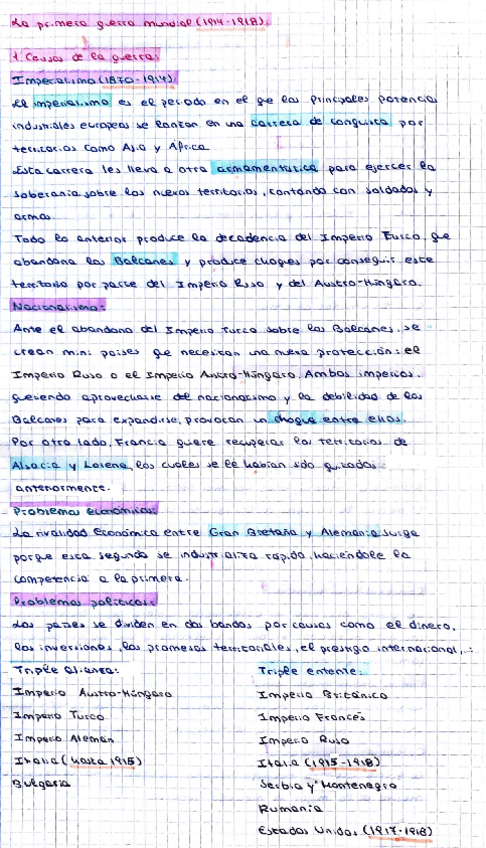 La primera guerra mundial (1914-1918).
1. Causas de la guerra:
Imperialismo (1870-1914):
El imperialismo es el período en el que las principales potencias
industriales europeas se lanzan en una carrera de conquista por
territorios como Asia y África.
Esta carrera les lleva a otra armamentística para ejercer la
soberanía sobre los nuevos territorios, contando con soldados y
armas.
Todo lo anterior produce la decadencia del Imperio Turco, que
abandona los Balcanes y produce choques por conseguir este
territorio por parse del Imperio Ruso y del Austro-Húngaro.
Nacionalismo:
Ante el abandono del Imperio Turco sobre los Balcanes, se
crean mini países que necesitan una nueva protección: el
Imperio Ruso o el Imperio Austro-Húngaro. Ambos imperios,
queriendo aprovecharse del nacionalismo y la debilidad de los
Balcanes para expandirse, provocan un choque entre ellos.
Por otro lado, Francia quiere recuperar los territorios de
Alsacia y Lorena, los cuales se le habían sido quitados
anteriormente.
Problemas económicos:
La rivalidad económica entre Gran Bretaña y Alemania surge
porque esta segunda se industrializa rápido, haciéndole la
competencia a la primera.
Problemas políticos:
Los países se dividen en dos bandos por causas como el dinero,
las inversiones, las promesas territoriales, el prestigio internacional,...:
Triple Alianza: Triple entente:
Imperio Austro-Húngaro Imperio Británico
Imperio Turco Imperio Francés
Imperio Alemán Imperio Ruso
Italia (hasta 1915) Italia (1915-1918)
Bulgaria Serbia y Montenegro
Rumania
Estados Unidos (1917-1918)